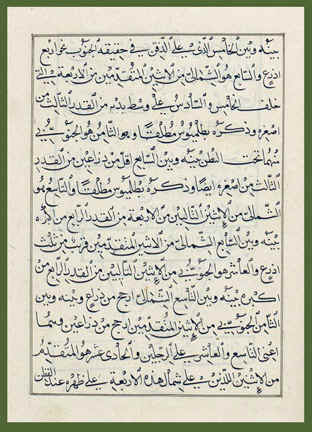 بينه وبين الخامس الذي على الدقن في حقيقة الجنوب نحو اربع
اذرع والسابع هو الشمالى من الاثنين المتقدمين من الاربعة التي
خلف الخامس والسادس على وسط بدنه من القدر الثالث من
اصغره وذكره بطلميوس مطلقا والثامن هو الجنوبى
منهما تحت البطن بينه وبين السابع اقل من ذراعين من القدر
الثالث من اصغره ايضا وذكره بطلميوس مطلقا والتاسع هو
الشمالى من الاثنين التاليين من الاربعة من القدر الرابع من
بينه وبين السابع الشمالى من الاثنين المتقدمين قريب من ثلث
اذرع والعاشر هو الجنوبى من الاثنين التاليين من القدر الرابع من
اكبره بينه وبين التاسع الشمالى ارجح من ذراع وبينه وبين
الثامن الجنوبى من الاثنين المتقدمين ارجح من ذراعين وهما
اعنى التاسع والعاشر على الرجلين والحادى عشر هو المتقدم
من الاثنين اللذين على شمال هذه الاربعة على ظهره عند القطن